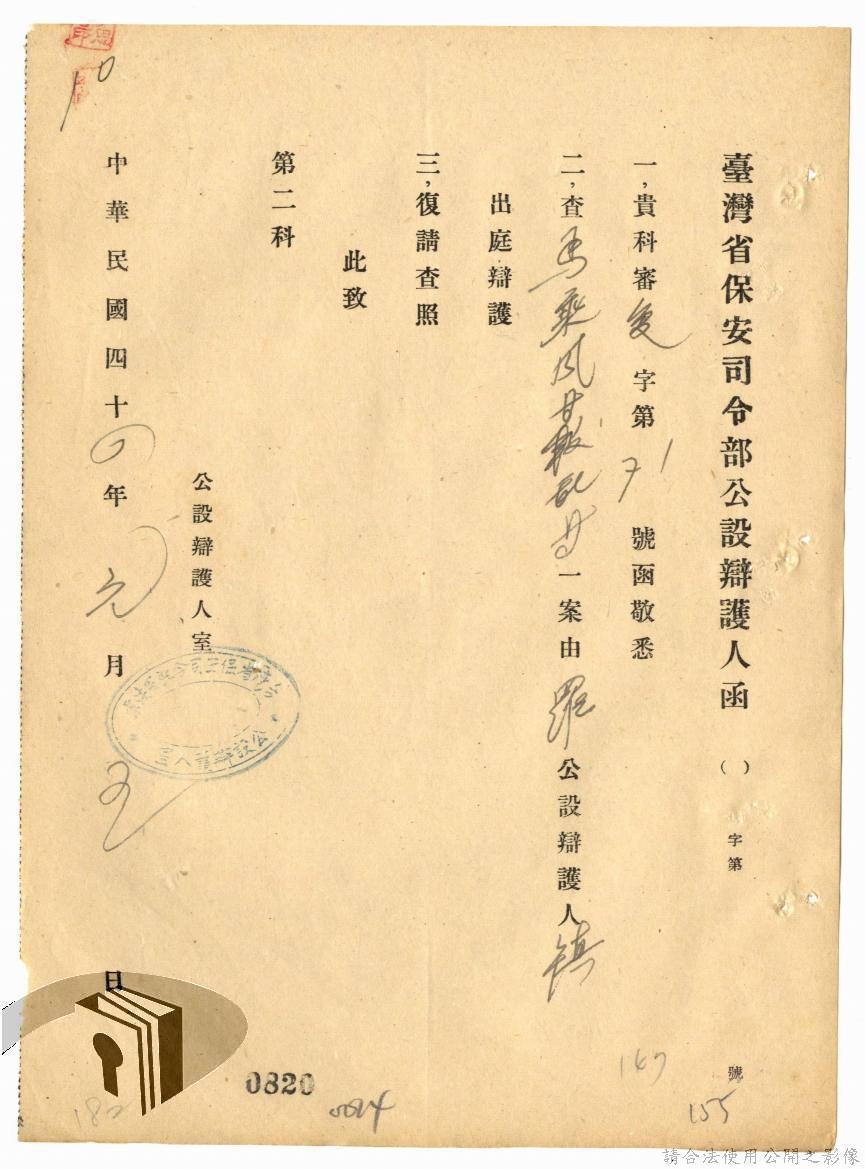 臺灣省保安司令部公設辯護人函 （ ） 字第 號
一，貴科審复字第71號函敬悉
二，查馬乘風等叛亂等一案由羅公設辯護人鎮
出庭辯護
三，復請查照
此致
第二科
公設辯護人室
中華民國四十四年元月 日
公設辯護人室
10
0820
147
155
180
請合法使用公開之影像